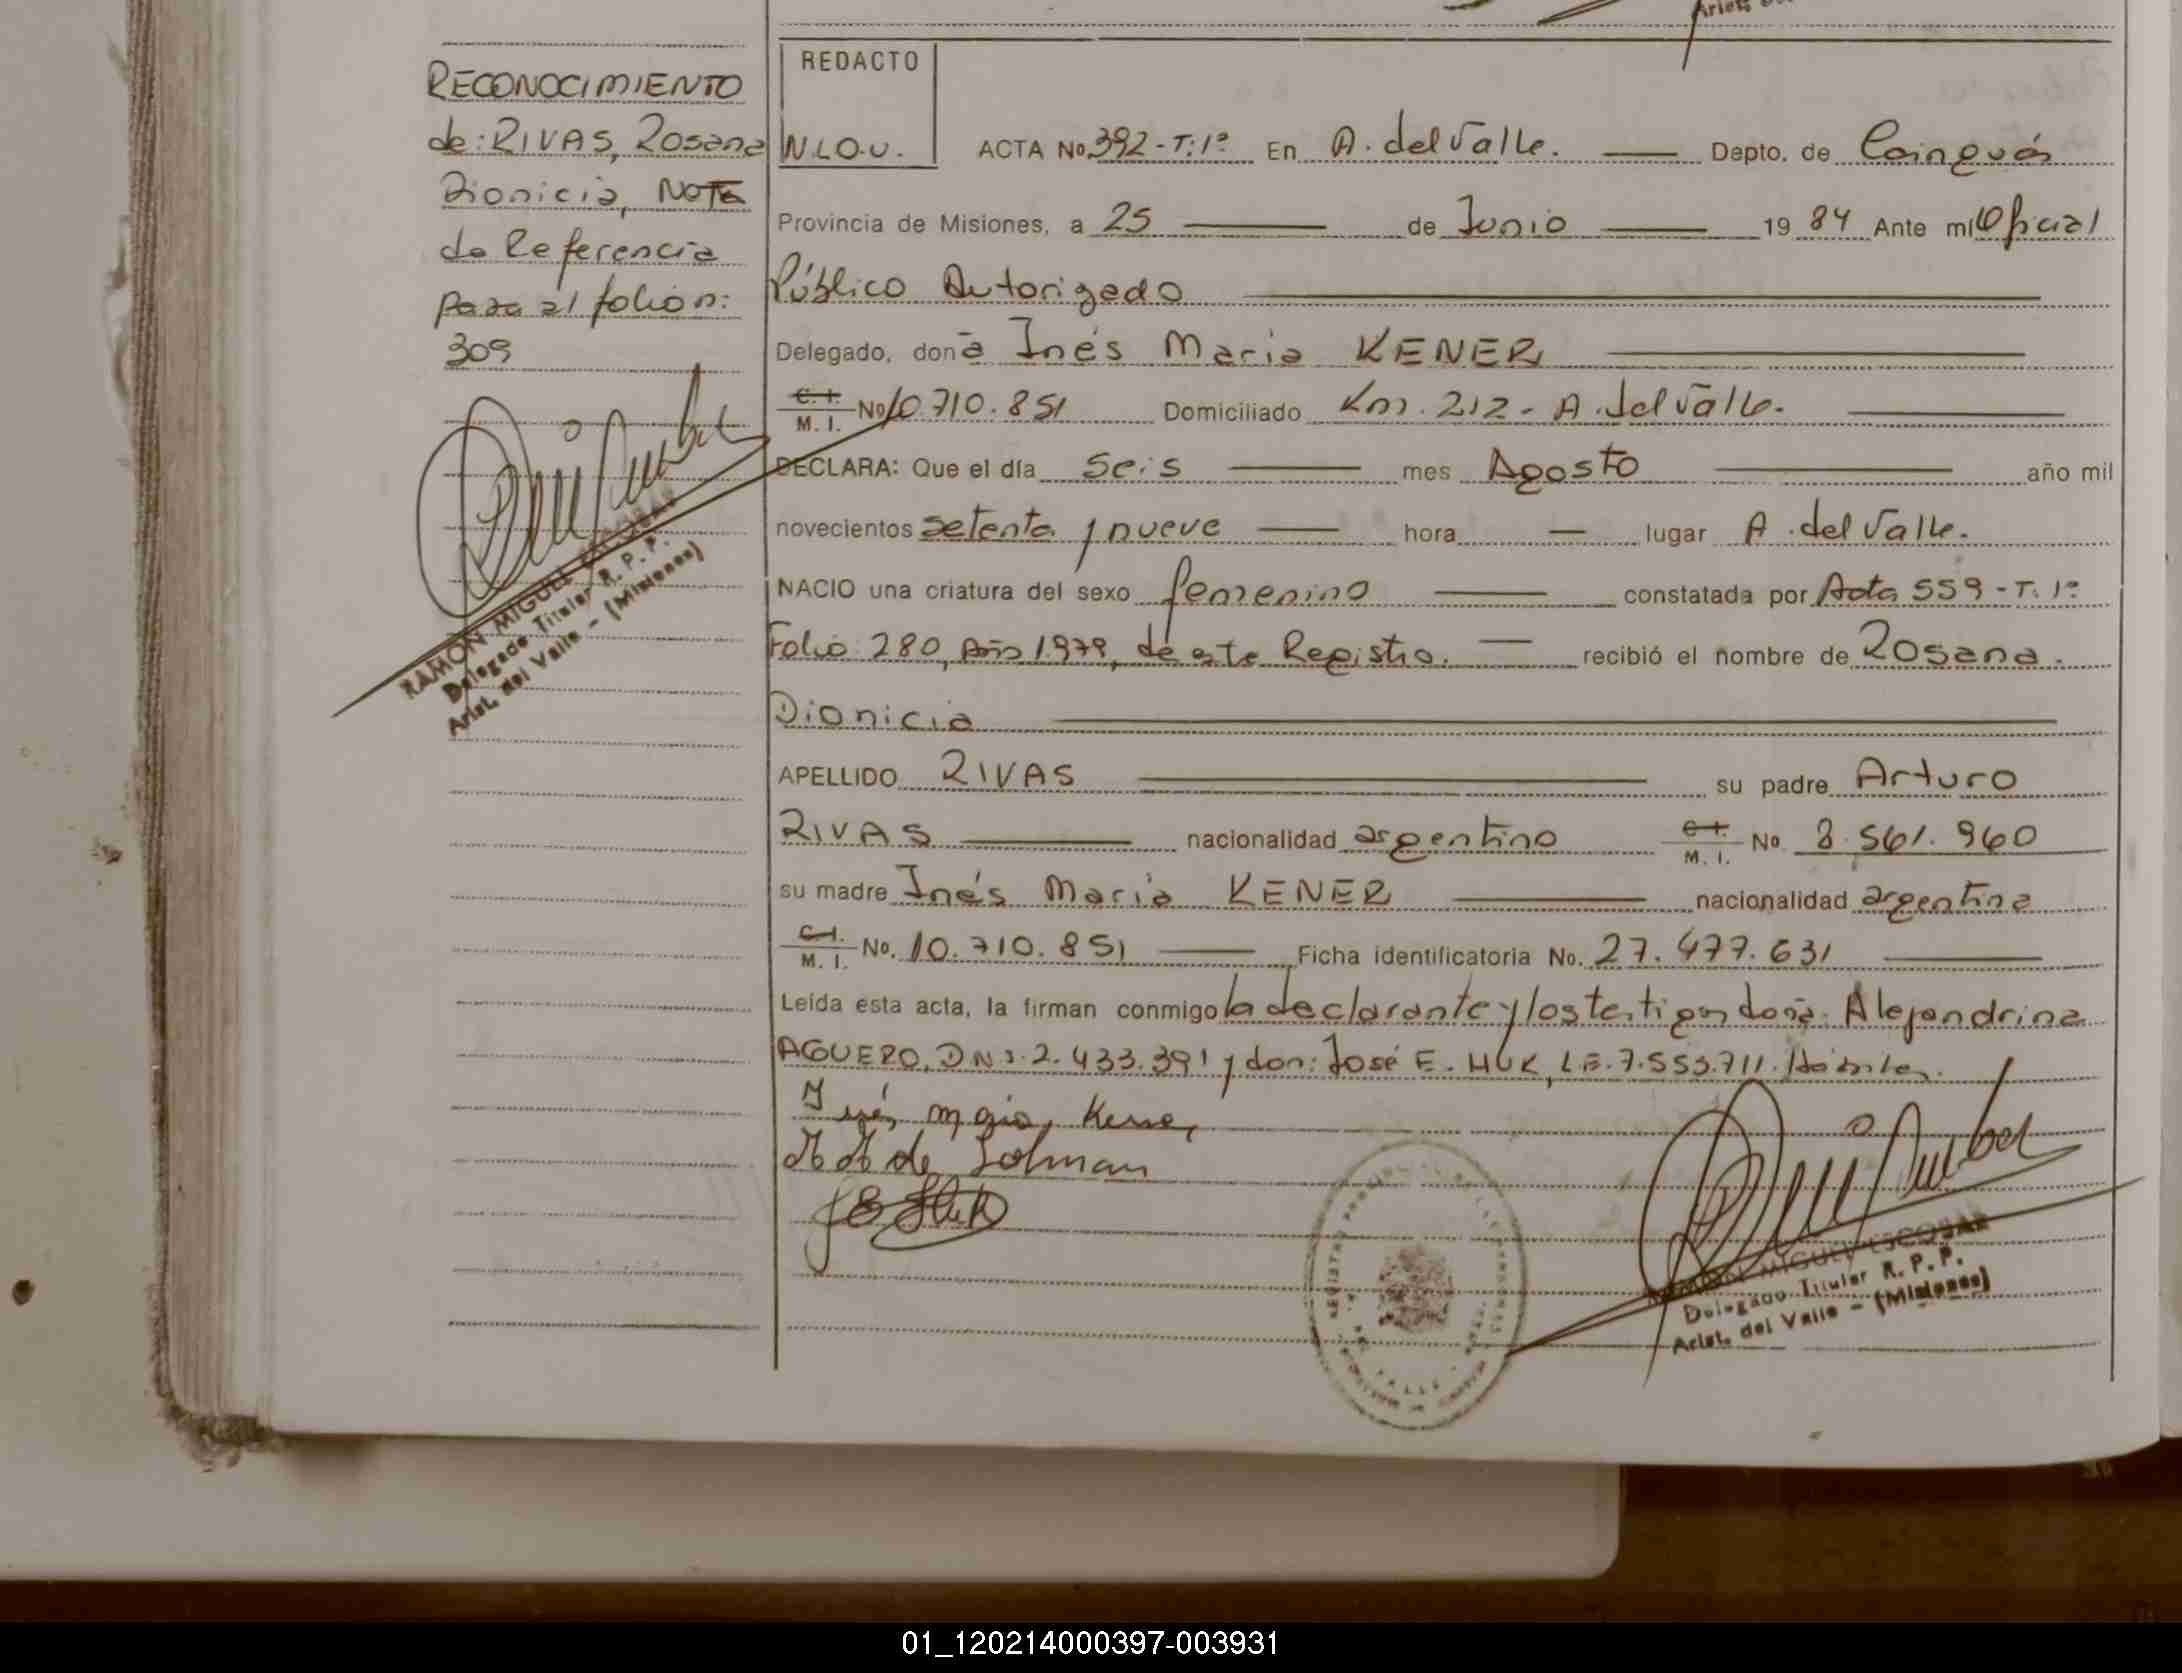 RECONOCIMIENTO
de: RIVAS, Rosana
Dionicia, NoTa
de Referencia
para al folio n:
309
RAMON MIGUEL ESCOBAR
Delegado Titular R. P. P.
Arist. del Valle - (Misiones)
REDACTO
N.L.O.U.
ACTA No 392-T:1º En A. del Valle. Depto. de Cainguás
Provincia de Misiones, a 25 de Junio 19 84 Ante mí Oficial
Público Autorizado
Delegado, donã Inés Maria KENER
C. I. M. I. No 10.710.851 Domiciliado Km. 212 - A. del Valle.
DECLARA: Que el día seis mes Agosto año mil
novecientos setenta y nueve hora — lugar A. del Valle.
NACIO una criatura del sexo femenino constatada por Acta 559 - T. 1º
Folio: 280, Año 1979, de este Registro. recibió el nombre de Rosana.
Dionicia
APELLIDO RIVAS su padre Arturo
RIVAS nacionalidad argentino C. I. M. I. No 8.561.960
su madre Inés Maria KENER nacionalidad argentina
C. I. M. I. No. 10.710.851 Ficha identificatoria No. 27.477.631
Leída esta acta, la firman conmigo la declarante y los testigos doña: Alejandrina
AGUERO, DNI. 2.433.391 y don: José E. HUK, LE. 7.553.711. Hábiles.
Inés
RAMON MIGUEL ESCOBAR
Delegado Titular R. P. P.
Arist. del Valle - (Misiones)
01_120214000397-003931